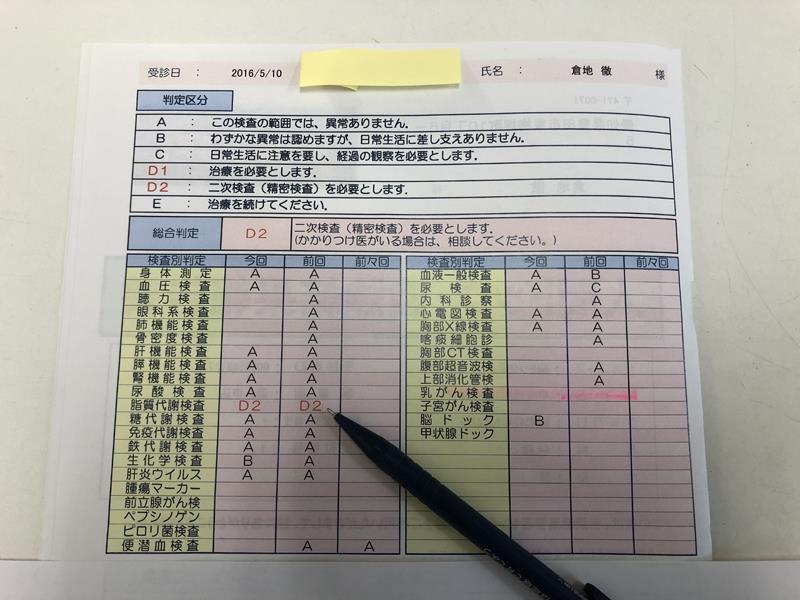 受診日 ： 2016/5/10 氏名 ： 倉地 徹 様
〒 471-0071
判定区分
A ： この検査の範囲では、異常ありません。
B ： わずかな異常は認めますが、日常生活に差し支えありません。
C ： 日常生活に注意を要し、経過の観察を必要とします。
D1 ： 治療を必要とします。
D2 ： 二次検査（精密検査）を必要とします。
E ： 治療を続けてください。
総合判定 D2 二次検査（精密検査）を必要とします。
(かかりつけ医がいる場合は、相談してください。)
検査別判定 今回 前回 前々回
身体測定 A A
血圧検査 A A
聴力検査 A
眼科系検査 A
肺機能検査 A
骨密度検査 A
肝機能検査 A A
膵機能検査 A A
腎機能検査 A A
尿酸検査 A A
脂質代謝検査 D2 D2
糖代謝検査 A A
免疫代謝検査 A A
鉄代謝検査 A A
生化学検査 B A
肝炎ウイルス A A
腫瘍マーカー
前立腺がん検
ペプシノゲン
ピロリ菌検査
便潜血検査 A A
検査別判定 今回 前回 前々回
血液一般検査 A B
尿検査 A C
内科診察 A
心電図検査 A A
胸部X線検査 A A
喀痰細胞診 A
胸部CT検査
腹部超音波検 A
上部消化管検 A
乳がん検査
子宮がん検査
脳ドック B
甲状腺ドック